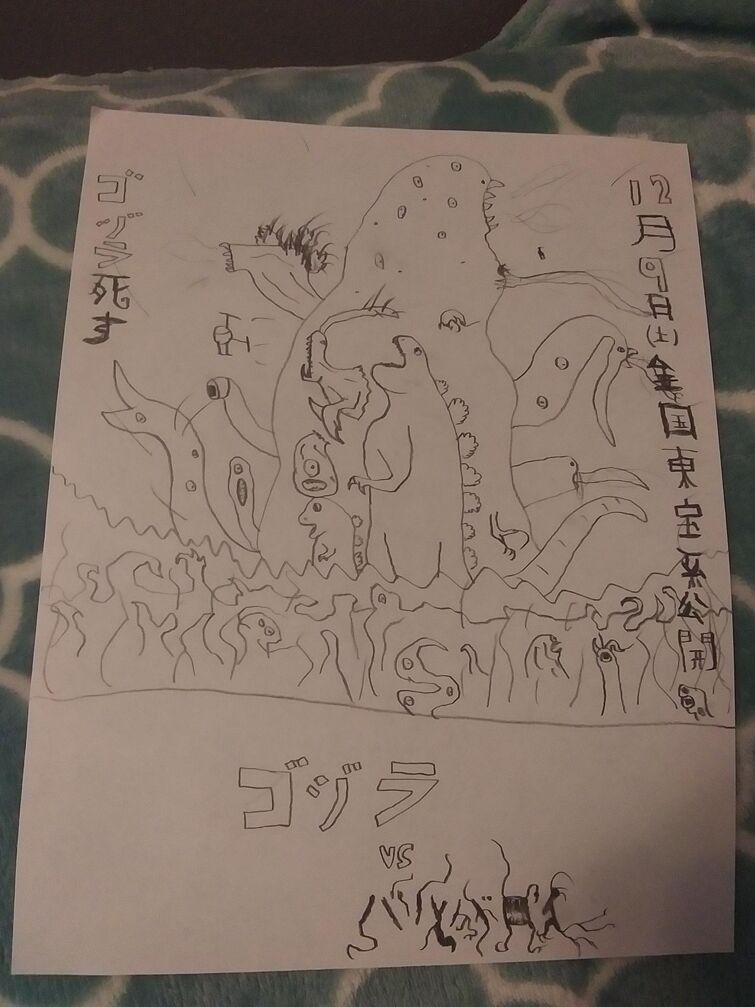 12月9日(土)全国東宝系公開
ゴジラ死す
ゴジラ
VS